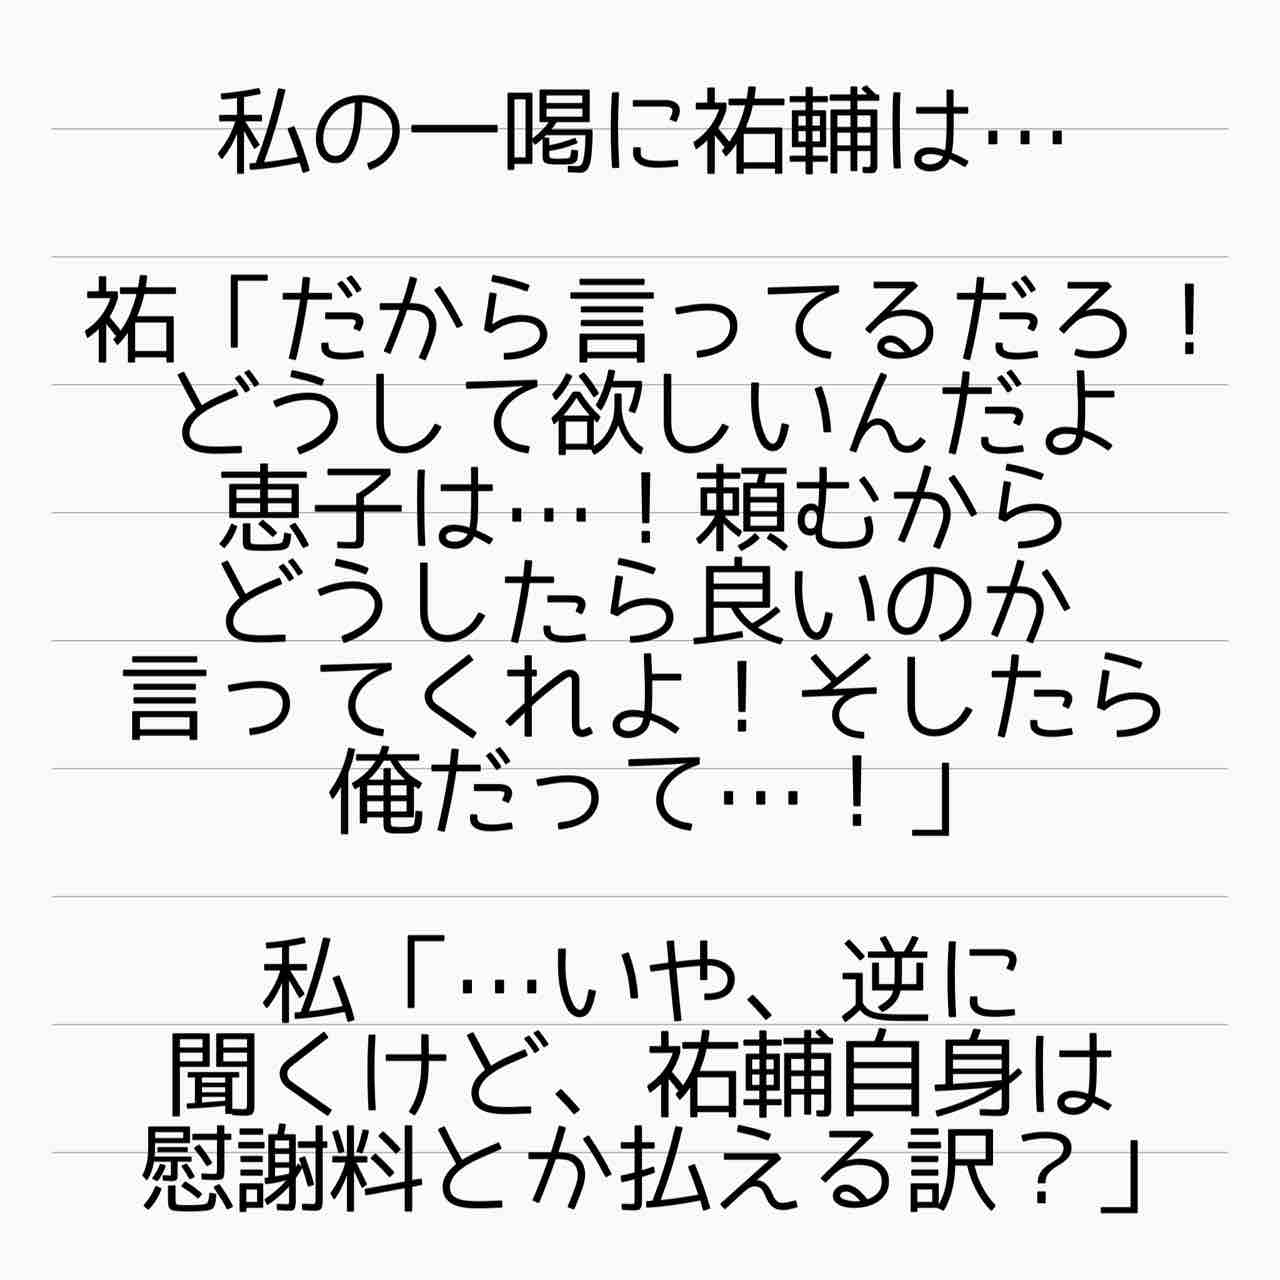 私の一喝に祐輔は…
祐「だから言ってるだろ！
どうして欲しいんだよ
恵子は…！頼むから
どうしたら良いのか
言ってくれよ！そしたら
俺だって…！」
私「…いや、逆に
聞くけど、祐輔自身は
慰謝料とか払える訳？」